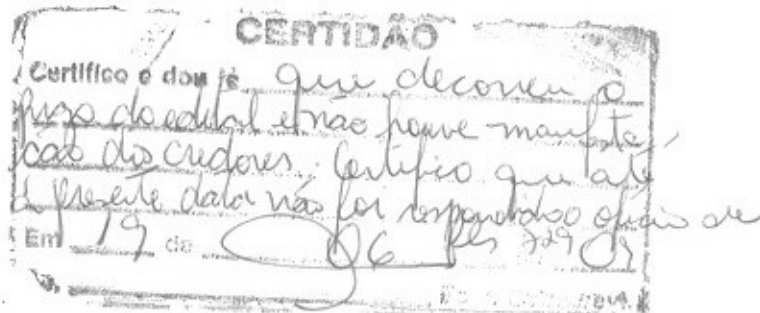 CERTIDÃO
Certifico e dou fé que decorreu o
prazo do edital e não houve manifesta
ção dos credores. Certifico que até
a presente data não foi respondido ofício de
Em 19 de 06 fls 729 09